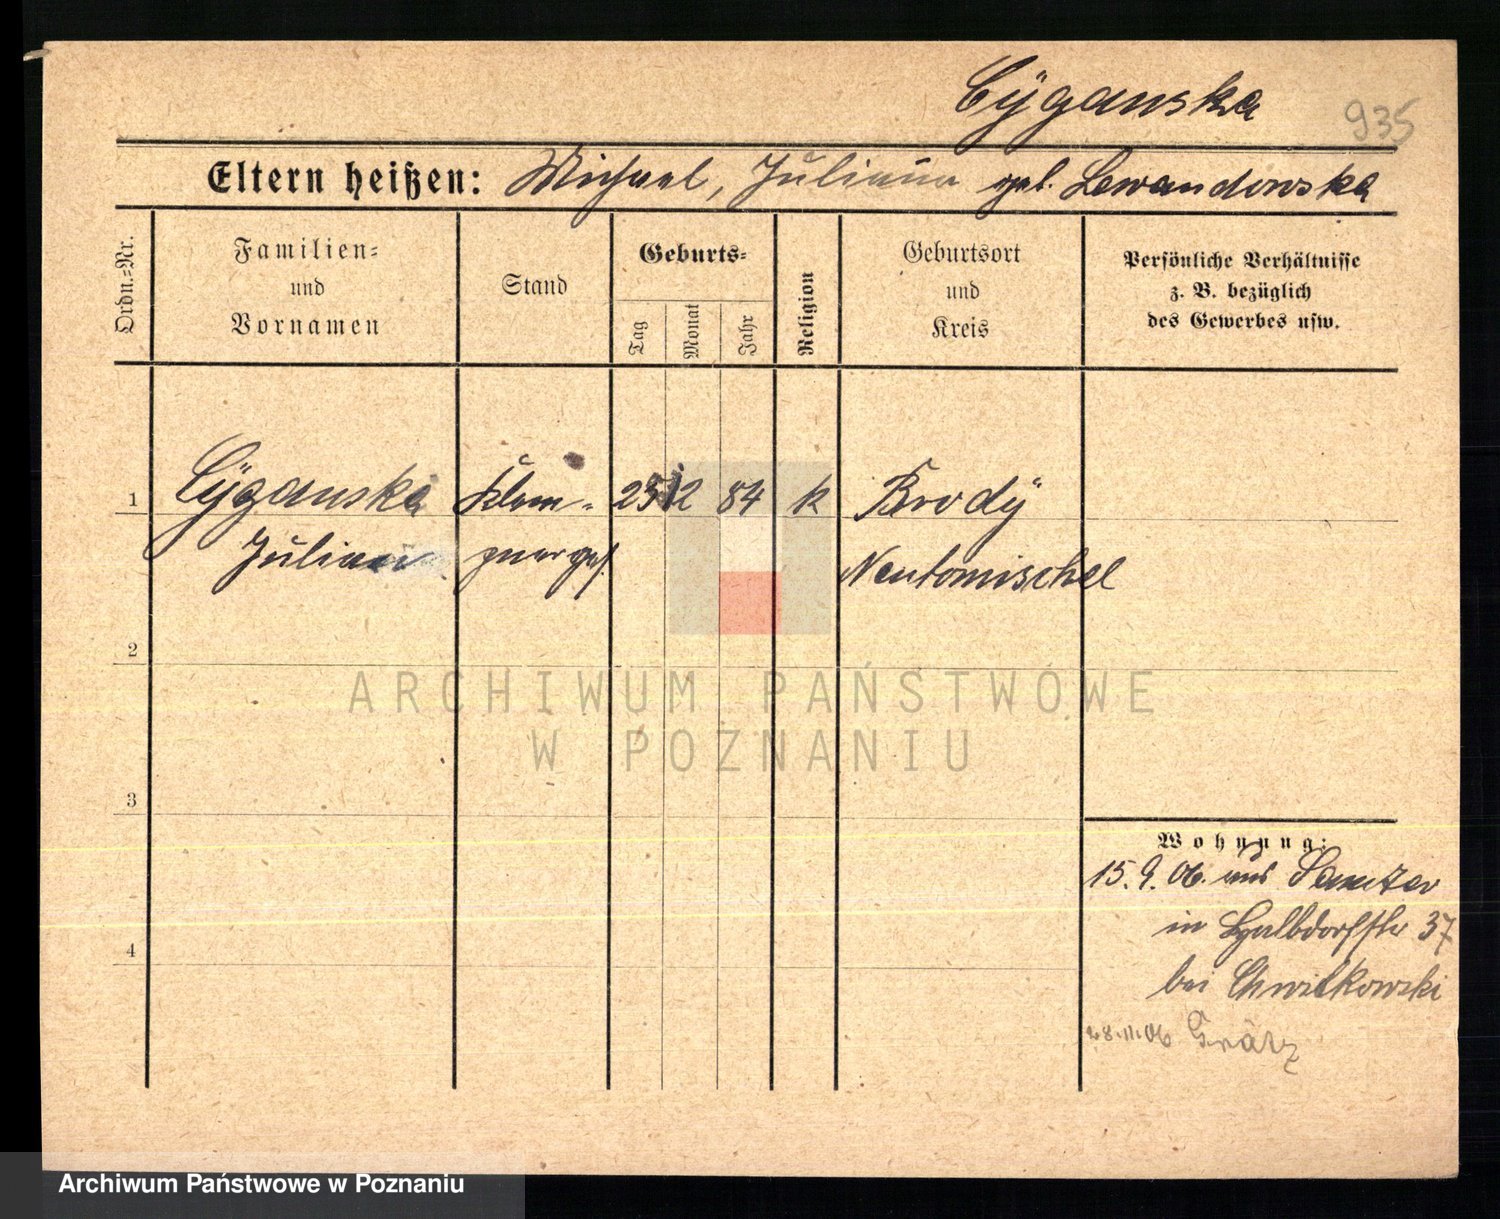 Cÿganska 935
Eltern heißen: Michael, Juliana geb. Lewandowska
Ordn.=Nr.
Familien=
und
Vornamen
Stand
Geburts=
Tag
Monat
Jahr
Religion
Geburtsort
und
Kreis
Persönliche Verhältnisse
z. B. bezüglich
des Gewerbes usw.
1 Cÿganska Klem- 25 12 84 k Brodÿ
Julian pnerges. Neutomischel
2
ARCHIWUM PAŃSTWOWE
W POZNANIU
3
Wohnung:
15.9.06. aus Samter
in Halbdorfstr 37
4
bei Chwilkowski
28.11.06 Grätz
Archiwum Państwowe w Poznaniu